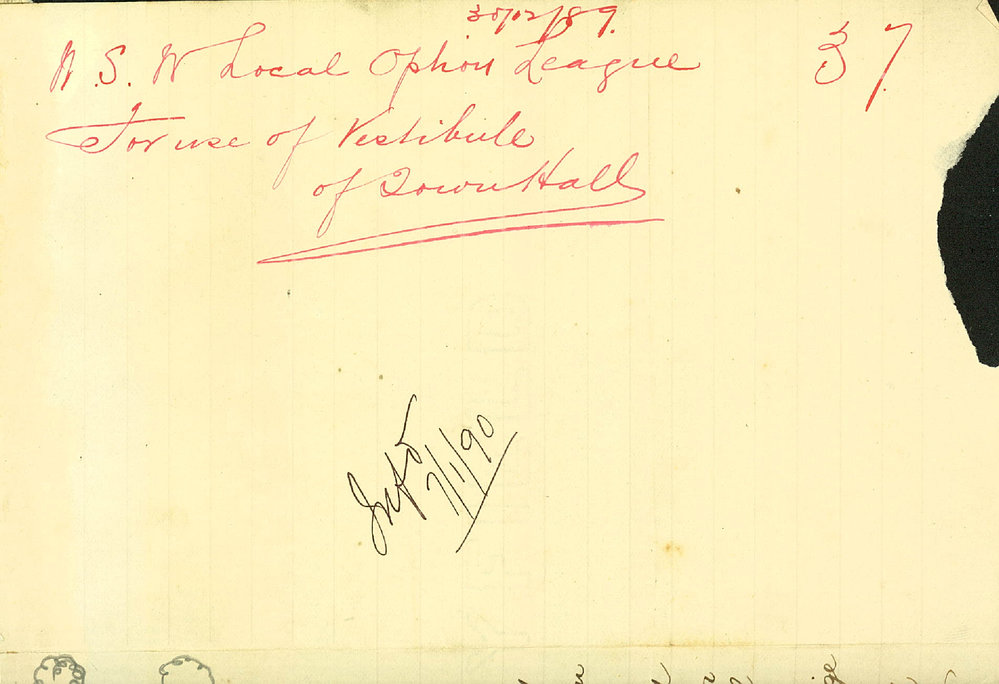 30/12/89.
N.S.W Local Option League 37
For use of Vestibule
of Town Hall
Infd
7/1/90